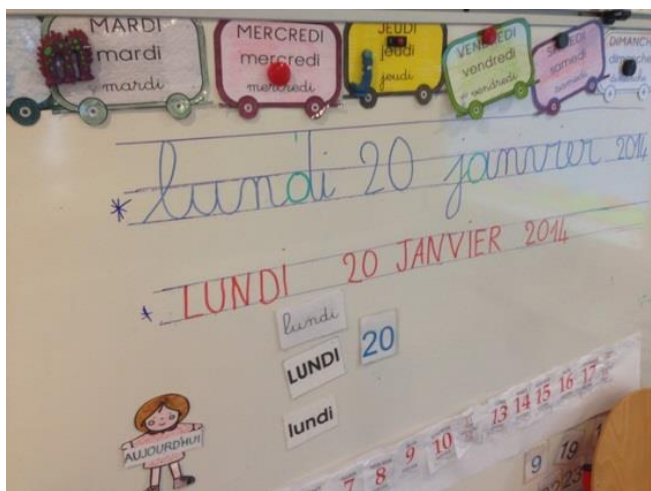 MARDI
mardi
mardi
MERCREDI
mercredi
mercredi
JEUDI
jeudi
jeudi
VENDREDI
vendredi
vendredi
SAMEDI
samedi
samedi
DIMANCHE
dimanche
lundi 20 janvier 2014
LUNDI 20 JANVIER 2014
lundi
LUNDI
20
lundi
AUJOURD'HUI
7 8 9 10 13 14 15 16 17
9 19
23